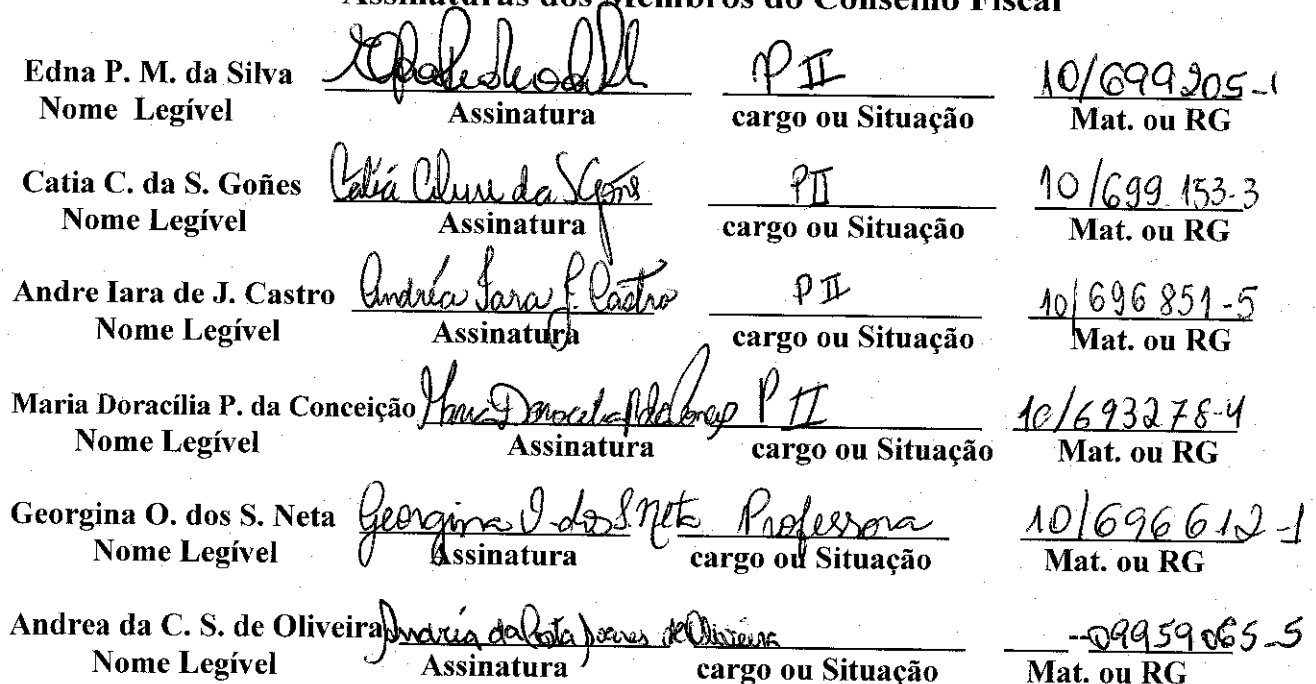 Assinaturas dos Membros do Conselho Fiscal
Edna P. M. da Silva P II 10/699205-1
Nome Legível Assinatura cargo ou Situação Mat. ou RG
Catia C. da S. Goñes Catiá da S Goñs PII 10/699.153-3
Nome Legível Assinatura cargo ou Situação Mat. ou RG
Andre Iara de J. Castro Andréa Iara J. Castro P II 10/696851-5
Nome Legível Assinatura cargo ou Situação Mat. ou RG
Maria Doracília P. da Conceição Maria P II 10/693278-4
Nome Legível Assinatura cargo ou Situação Mat. ou RG
Georgina O. dos S. Neta Georgina O. dos S. Neta Professora 10/696612-1
Nome Legível Assinatura cargo ou Situação Mat. ou RG
Andrea da C. S. de Oliveira Andréia da Costa Soares de Oliveira 09959065-5
Nome Legível Assinatura cargo ou Situação Mat. ou RG